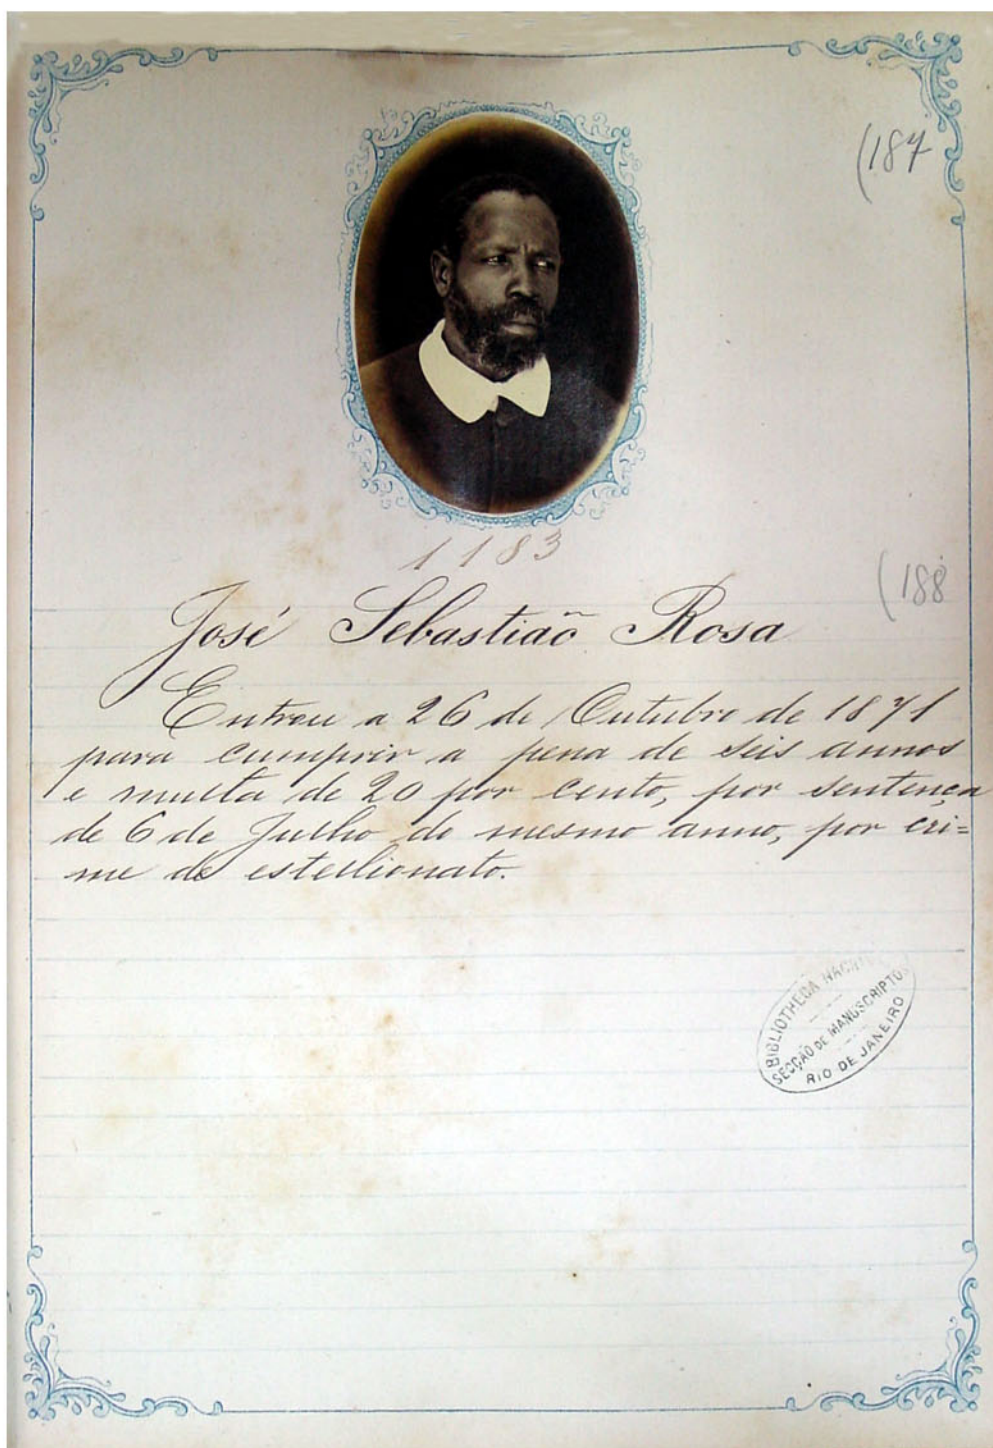 (187
1183
(188
José Sebastiaõ Rosa
Entrou a 26 de Outubro de 1871
para cumprir a pena de seis annos
e multa de 20 por cento, por sentença
de 6 de Julho do mesmo anno, por cri=
me de estellionato.
BIBLIOTHECA NACIONAL
SECÇÃO DE MANUSCRIPTOS
RIO DE JANEIRO